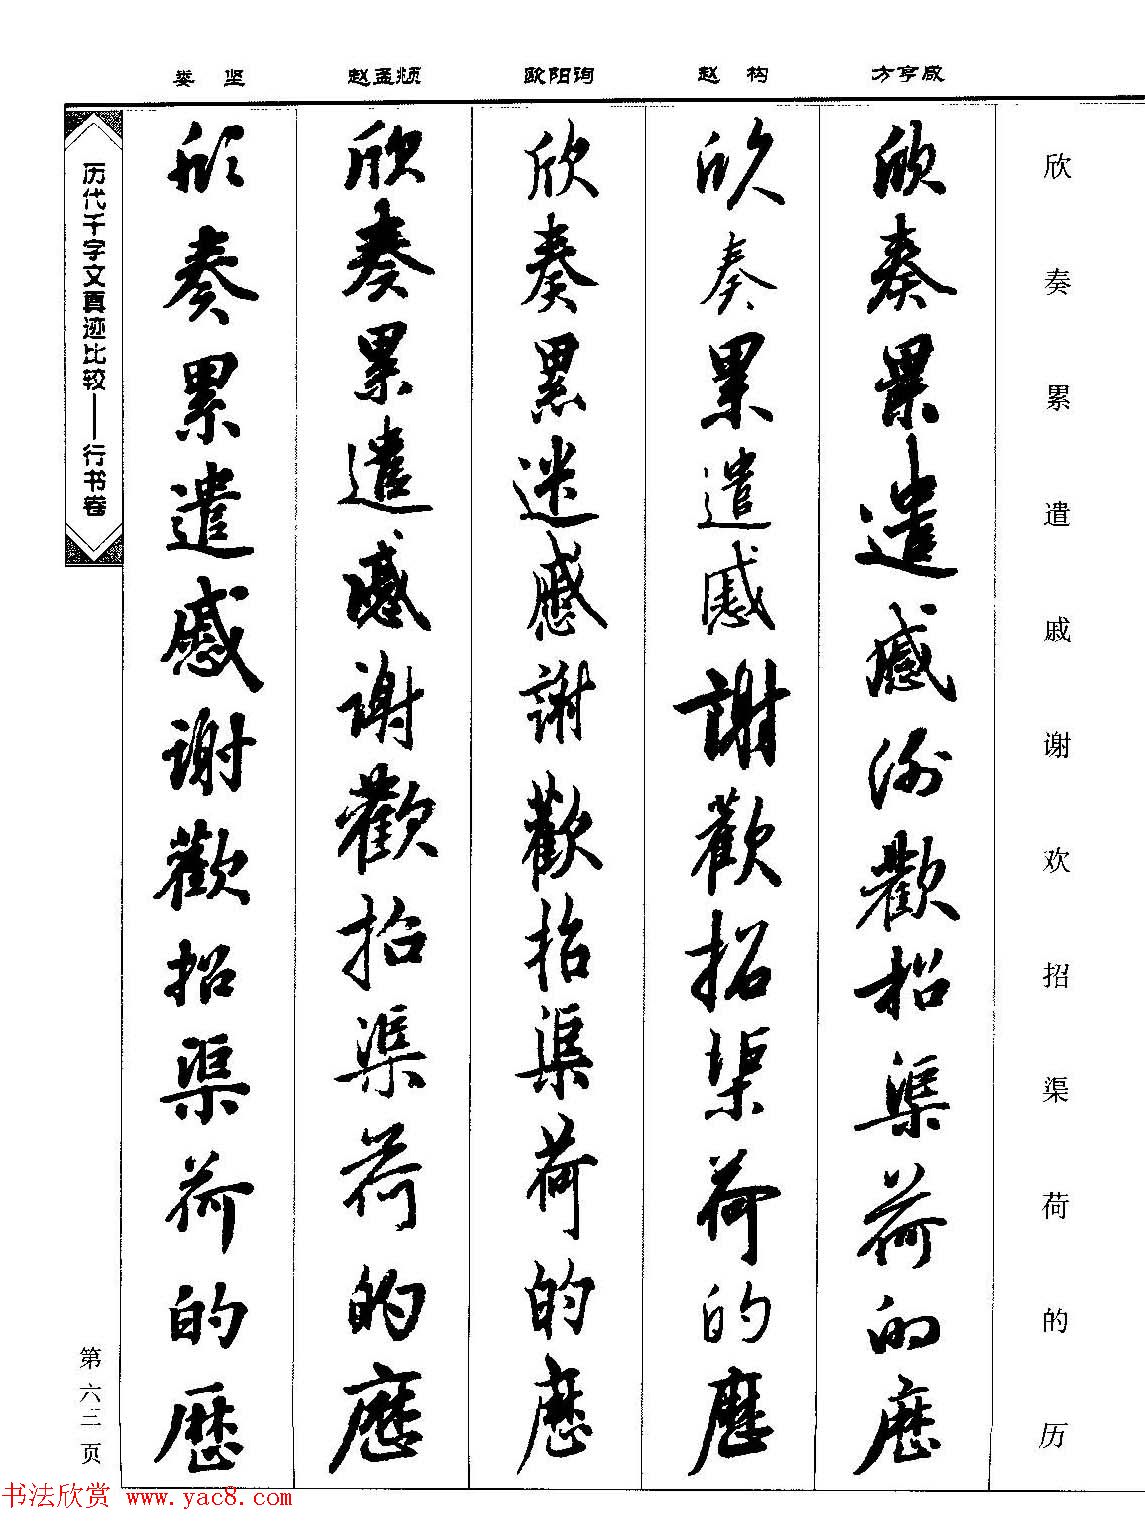 娄坚 赵孟頫 欧阳询 赵构 方亨咸
欣奏累遣戚谢欢招渠荷的历
欣奏累遣慼謝歡招渠荷的歷
欣奏累遣慼謝歡招渠荷的歷
欣奏累遣慼謝歡招渠荷的歷
欣奏累遣慼謝歡招渠荷的歷
欣奏累遣慼謝歡招渠荷的歷
历代千字文真迹比较——行书卷
第六三页
书法欣赏 www.yac8.com